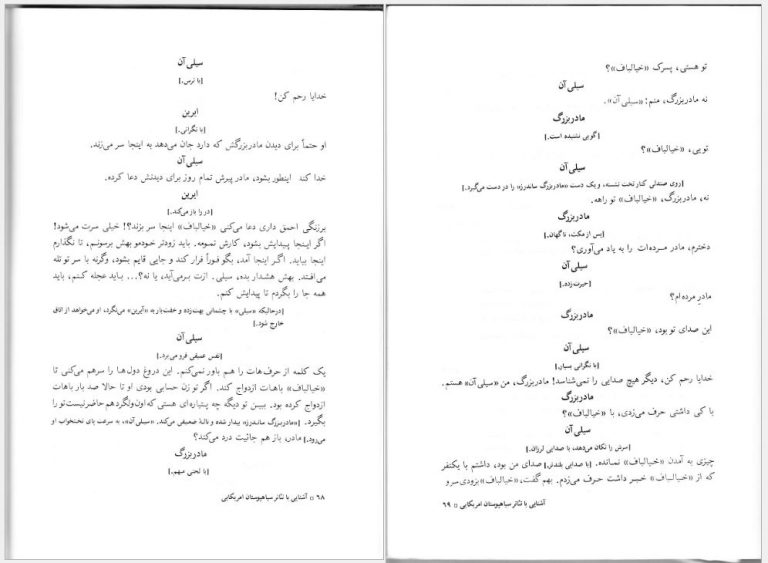 سیلی‌آن
[با ترس.]
خدایا رحم کن!
ایرین
[با نگرانی.]
او حتماً برای دیدن مادربزرگش که دارد جان می‌دهد به اینجا سر می‌زند.
سیلی‌آن
خدا کند اینطور بشود، مادر پیرش تمام روز برای دیدنش دعا کرده.
ایرین
[در را باز می‌کند.]
برزنگی احمق داری دعا می‌کنی «خیالباف» اینجا سر بزند؟! خیلی سرت می‌شود!
اگر اینجا پیدایش بشود، کارش تمومه. باید زودتر خودمو بهش برسونم، تا نگذارم
اینجا بیاید. اگر اینجا آمد، بگو فوراً فرار کند و جایی قایم بشود، وگرنه با سر تو تله
می‌افتد. بهش هشدار بده، سیلی. ازت برمی‌آید، یا نه؟... باید عجله کنم، باید
همه جا را بگردم تا پیدایش کنم.
[درحالیکه «سیلی» با چشمانی بهت‌زده و خفت‌بار به «آیرین» می‌نگرد، او می‌خواهد از اتاق
خارج شود.]
سیلی‌آن
[نفس عمیقی فرو می‌برد.]
یک کلمه از حرف‌هات را هم باور نمی‌کنم. این دروغ دول‌ها را سرهم می‌کنی تا
«خیالباف» باهات ازدواج کند. اگر تو زن حسابی بودی او تا حالا صد بار باهات
ازدواج کرده بود. ببین تو دیگه چه پتیاره‌ای هستی که اون ولگردهم حاضرنیست تو را
بگیرد. [«مادربزرگ ساندرز» بیدار شده و نالهٔ ضعیفی می‌کند. «سیلی‌آن»، به سرعت پای تختخواب او
می‌رود.] مادر، باز هم جائیت درد می‌کند؟
مادربزرگ
[با لحنی مبهم.]
۶۸ □ آشنایی با تئاتر سیاهپوستان امریکایی
تو هستی، پسرک «خیالباف»؟
سیلی‌آن
نه مادربزرگ، منم: «سیلی‌آن».
مادربزرگ
[گویی نشنیده است.]
تویی، «خیالباف»؟
سیلی‌آن
[روی صندلی کنار تخت نشسته، و یک دست «مادربزرگ ساندرز» را در دست می‌گیرد.]
نه، مادربزرگ، «خیالباف» تو راهه.
مادربزرگ
[پس از مکث، ناگهان.]
دخترم، مادر مرده‌ات را به یاد می‌آوری؟
سیلی‌آن
[حیرت‌زده.]
مادرِ مرده‌ام؟
مادربزرگ
این صدای تو بود، «خیالباف»؟
سیلی‌آن
[با نگرانی بسیار.]
خدایا رحم کن، دیگر هیچ صدایی را نمی‌شناسد! مادربزرگ، من «سیلی‌آن» هستم.
مادربزرگ
با کی داشتی حرف می‌زدی، با «خیالباف»؟
سیلی‌آن
[سرش را تکان می‌دهد، با صدایی لرزان.]
چیزی به آمدن «خیالباف» نمانده. [با صدایی بلندتر.] صدای من بود، داشتم با یکنفر
که از «خیالباف» خبر داشت حرف می‌زدم. بهم گفت، «خیالباف» بزودی سر و
آشنایی با تئاتر سیاهپوستان امریکایی □ ۶۹